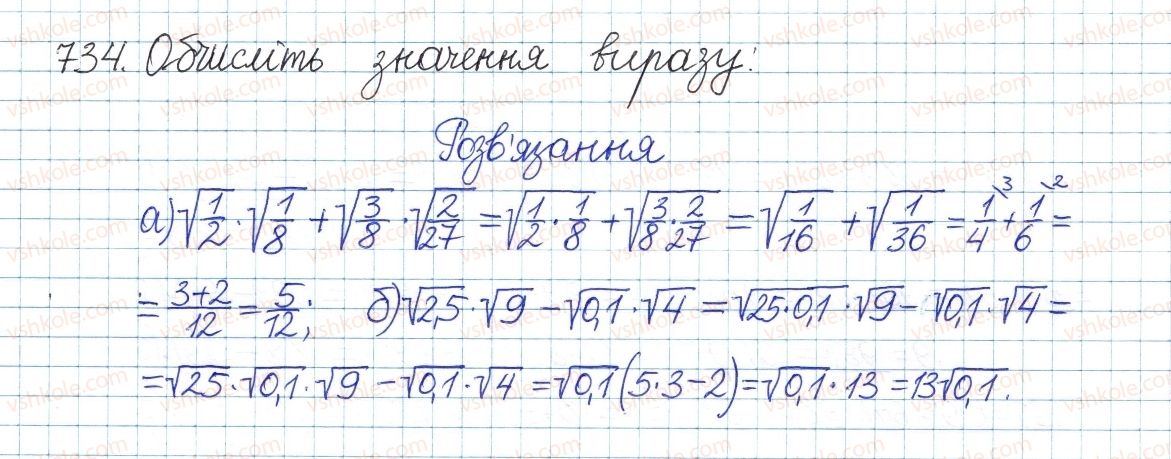 734. Обчисліть значення виразу:
Розв'язання
а) √(1/2) · √(1/8) + √(3/8) · √(2/27) = √(1/2 · 1/8) + √(3/8 · 2/27) = √(1/16) + √(1/36) = 1/4 ⁽³ + 1/6 ⁽² =
= (3+2)/12 = 5/12; б) √2,5 · √9 − √0,1 · √4 = √(25·0,1) · √9 − √0,1 · √4 =
= √25 · √0,1 · √9 − √0,1 · √4 = √0,1 (5·3−2) = √0,1 · 13 = 13√0,1.